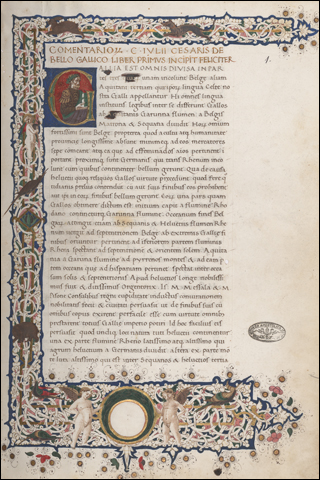 COMENTARIOR. C. IVLII CESARIS DE
BELLO GALLICO LIBER PRIMVS INCIPIT FELICITER
ALLIA EST OMNIS DIVISA IN PAR
unam incolunt Belge aliam
Aquitani tertiam qui ipsorum lingua Celte no
stra Galli appellantur Hi omnes lingua
institutis legibus inter se differunt Gallos
ab Aquitanis Garunna flumen a Belgis
Matrona & Sequana diuidit Horum omnium
fortissimi sunt Belge propterea quod a cultu atque humanitate
prouincie longissime absunt minimeque ad eos mercatores
sepe comeant atque ea que ad effeminandos animos pertinent
portant proximique sunt Germanis qui trans Rhenum inco
lunt cum quibus continenter bellum gerunt Qua de causa
heluetii quoque reliquos Gallos uirtute precedunt quod fere
prelus contendunt cum aut suis finibus eos prohibent
aut ipsi in eorum finibus bellum gerunt Eorum una pars quam
Gallos obtinere dictum est initium capit a flumine Rho
dano continetur Garunna flumine Oceano finibus Bel
garum attingit etiam ab Sequanis & Heluetiis flumen Rhe
num uergit ad septentriones Belge ab extremis Gallie fi
nibus oriuntur pertinent ad inferiorem partem fluminis
Rheni spectant ad septentriones & orientem solem Aquita
nia a Garunna flumine ad pyreneos montes & ad eam p
tem oceani que ad hispaniam pertinet spectat inter occa
sum solis & septentriones Apud heluetios longe nobilissi
mus fuit & ditissimus Orgetorix Is M. Messala & M
Pisone Consulibus regni cupiditate inductus coniurationem
nobilitatis fecit & ciuitati persuasit ut de finibus suis cum
nibus copiis exirent perfacile esse cum uirtute omnibus
prestarent totius Gallie imperio potiri Id hoc facilius eis
persuasit quod undique loci natura heluetii continentur
una ex parte flumine Rheno latissimo atque altissimo qui
agrum heluetium a Germanis diuidit altera ex parte mon
te iura altissimo qui est inter Sequanos & heluetios tertia